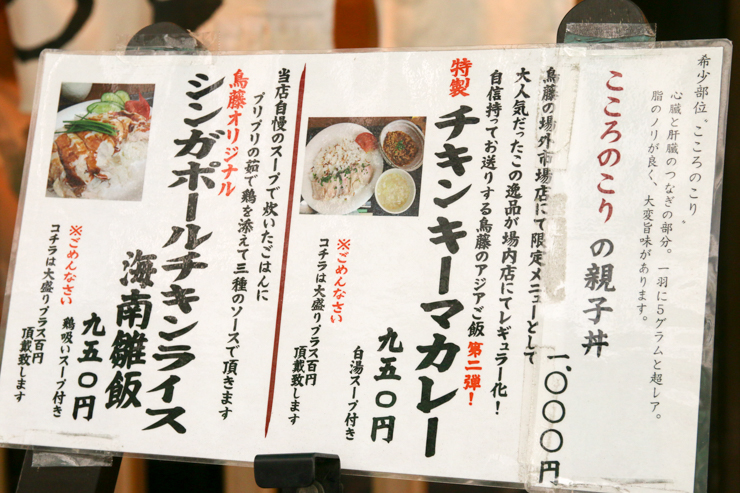 希少部位。こころのこり
心臓と肝臓のつなぎの部分。一羽に5グラムと超レア。
脂のノリが良く、大変旨味があります。
こころのこりの親子丼
一、〇〇〇円
鳥藤の場外市場店にて限定メニューとして
大人気だったこの逸品が場内店にてレギュラー化！
自信持ってお送りする鳥藤のアジアご飯第二弾！
特製
チキンキーマカレー
九五〇円
白湯スープ付き
※ごめんなさい
コチラは大盛りプラス百円
頂戴致します
当店自慢のスープで炊いたごはんに
プリプリの茹で鶏を添えて三種のソースで頂きます
鳥藤オリジナル
シンガポールチキンライス
海南雞飯
九五〇円
鶏吸いスープ付き
※ごめんなさい
コチラは大盛りプラス百円
頂戴致します